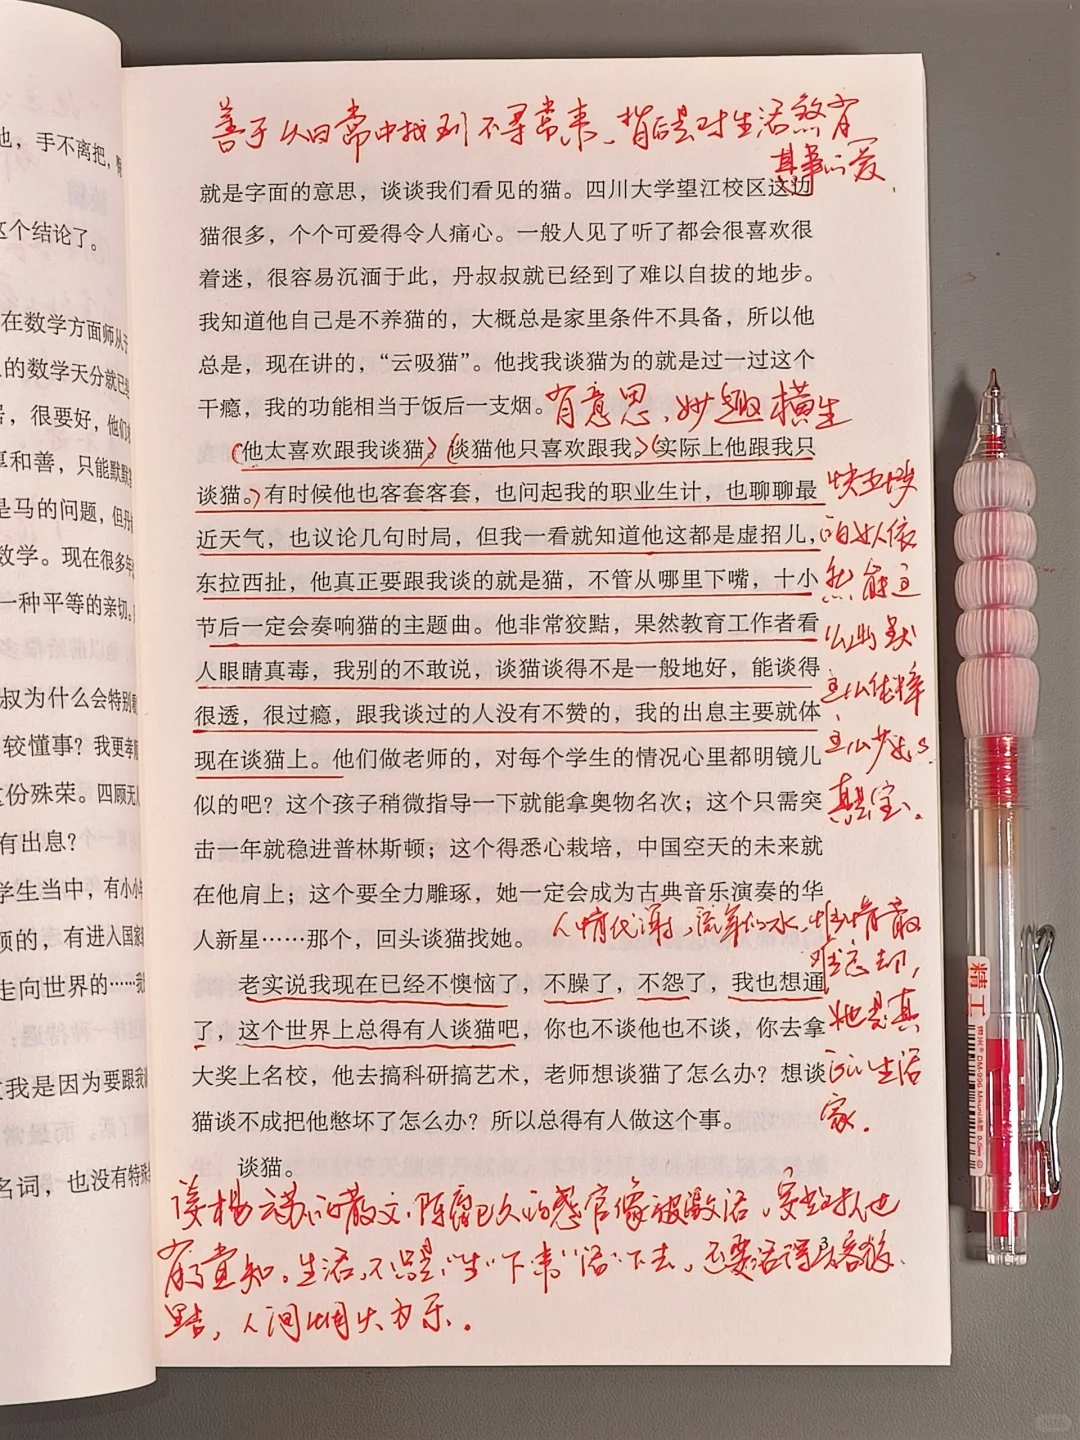 他，手不离把，
这个结论了。
在数学方面师从于
的数学天分就已经
居，很要好，他们
厚和善，只能默默
是马的问题，但丹
数学。现在很多年
一种平等的亲切。
叔叔为什么会特别看
较懂事？我更孝顺
这份殊荣。四顾无人
有出息？
学生当中，有小小年
领的，有进入国家
走向世界的……我
我是因为要跟我谈
名词，也没有特殊
善于从日常中找到不寻常来，背后是对生活煞有
其事的爱
就是字面的意思，谈谈我们看见的猫。四川大学望江校区这边
猫很多，个个可爱得令人痛心。一般人见了听了都会很喜欢很
着迷，很容易沉湎于此，丹叔叔就已经到了难以自拔的地步。
我知道他自己是不养猫的，大概总是家里条件不具备，所以他
总是，现在讲的，“云吸猫”。他找我谈猫为的就是过一过这个
干瘾，我的功能相当于饭后一支烟。
有意思，妙趣横生
（他太喜欢跟我谈猫。）（谈猫他只喜欢跟我。）（实际上他跟我只
谈猫。）有时候他也客套客套，也问起我的职业生计，也聊聊最
近天气，也议论几句时局，但我一看就知道他这都是虚招儿，
东拉西扯，他真正要跟我谈的就是猫，不管从哪里下嘴，十小
节后一定会奏响猫的主题曲。他非常狡黠，果然教育工作者看
人眼睛真毒，我别的不敢说，谈猫谈得不是一般地好，能谈得
很透，很过瘾，跟我谈过的人没有不赞的，我的出息主要就体
现在谈猫上。他们做老师的，对每个学生的情况心里都明镜儿
似的吧？这个孩子稍微指导一下就能拿奥物名次；这个只需突
击一年就稳进普林斯顿；这个得悉心栽培，中国空天的未来就
在他肩上；这个要全力雕琢，她一定会成为古典音乐演奏的华
人新星……那个，回头谈猫找她。
老实说我现在已经不懊恼了，不臊了，不怨了，我也想通
了，这个世界上总得有人谈猫吧，你也不谈他也不谈，你去拿
大奖上名校，他去搞科研搞艺术，老师想谈猫了怎么办？想谈
猫谈不成把他憋坏了怎么办？所以总得有人做这个事。
谈猫。
快五十岁
的女人依
然能这
么幽默
这么纯粹
这么少女，
真是宝。
人情代谢，流年似水，
难忘却，
她是真
的生活
家。
读杨云苏的散文，陈腐已久的感官像被激活，
有了觉知。生活，不只是“生”下来“活”下去，还要活得
点，人间烟火为乐。
3
精工